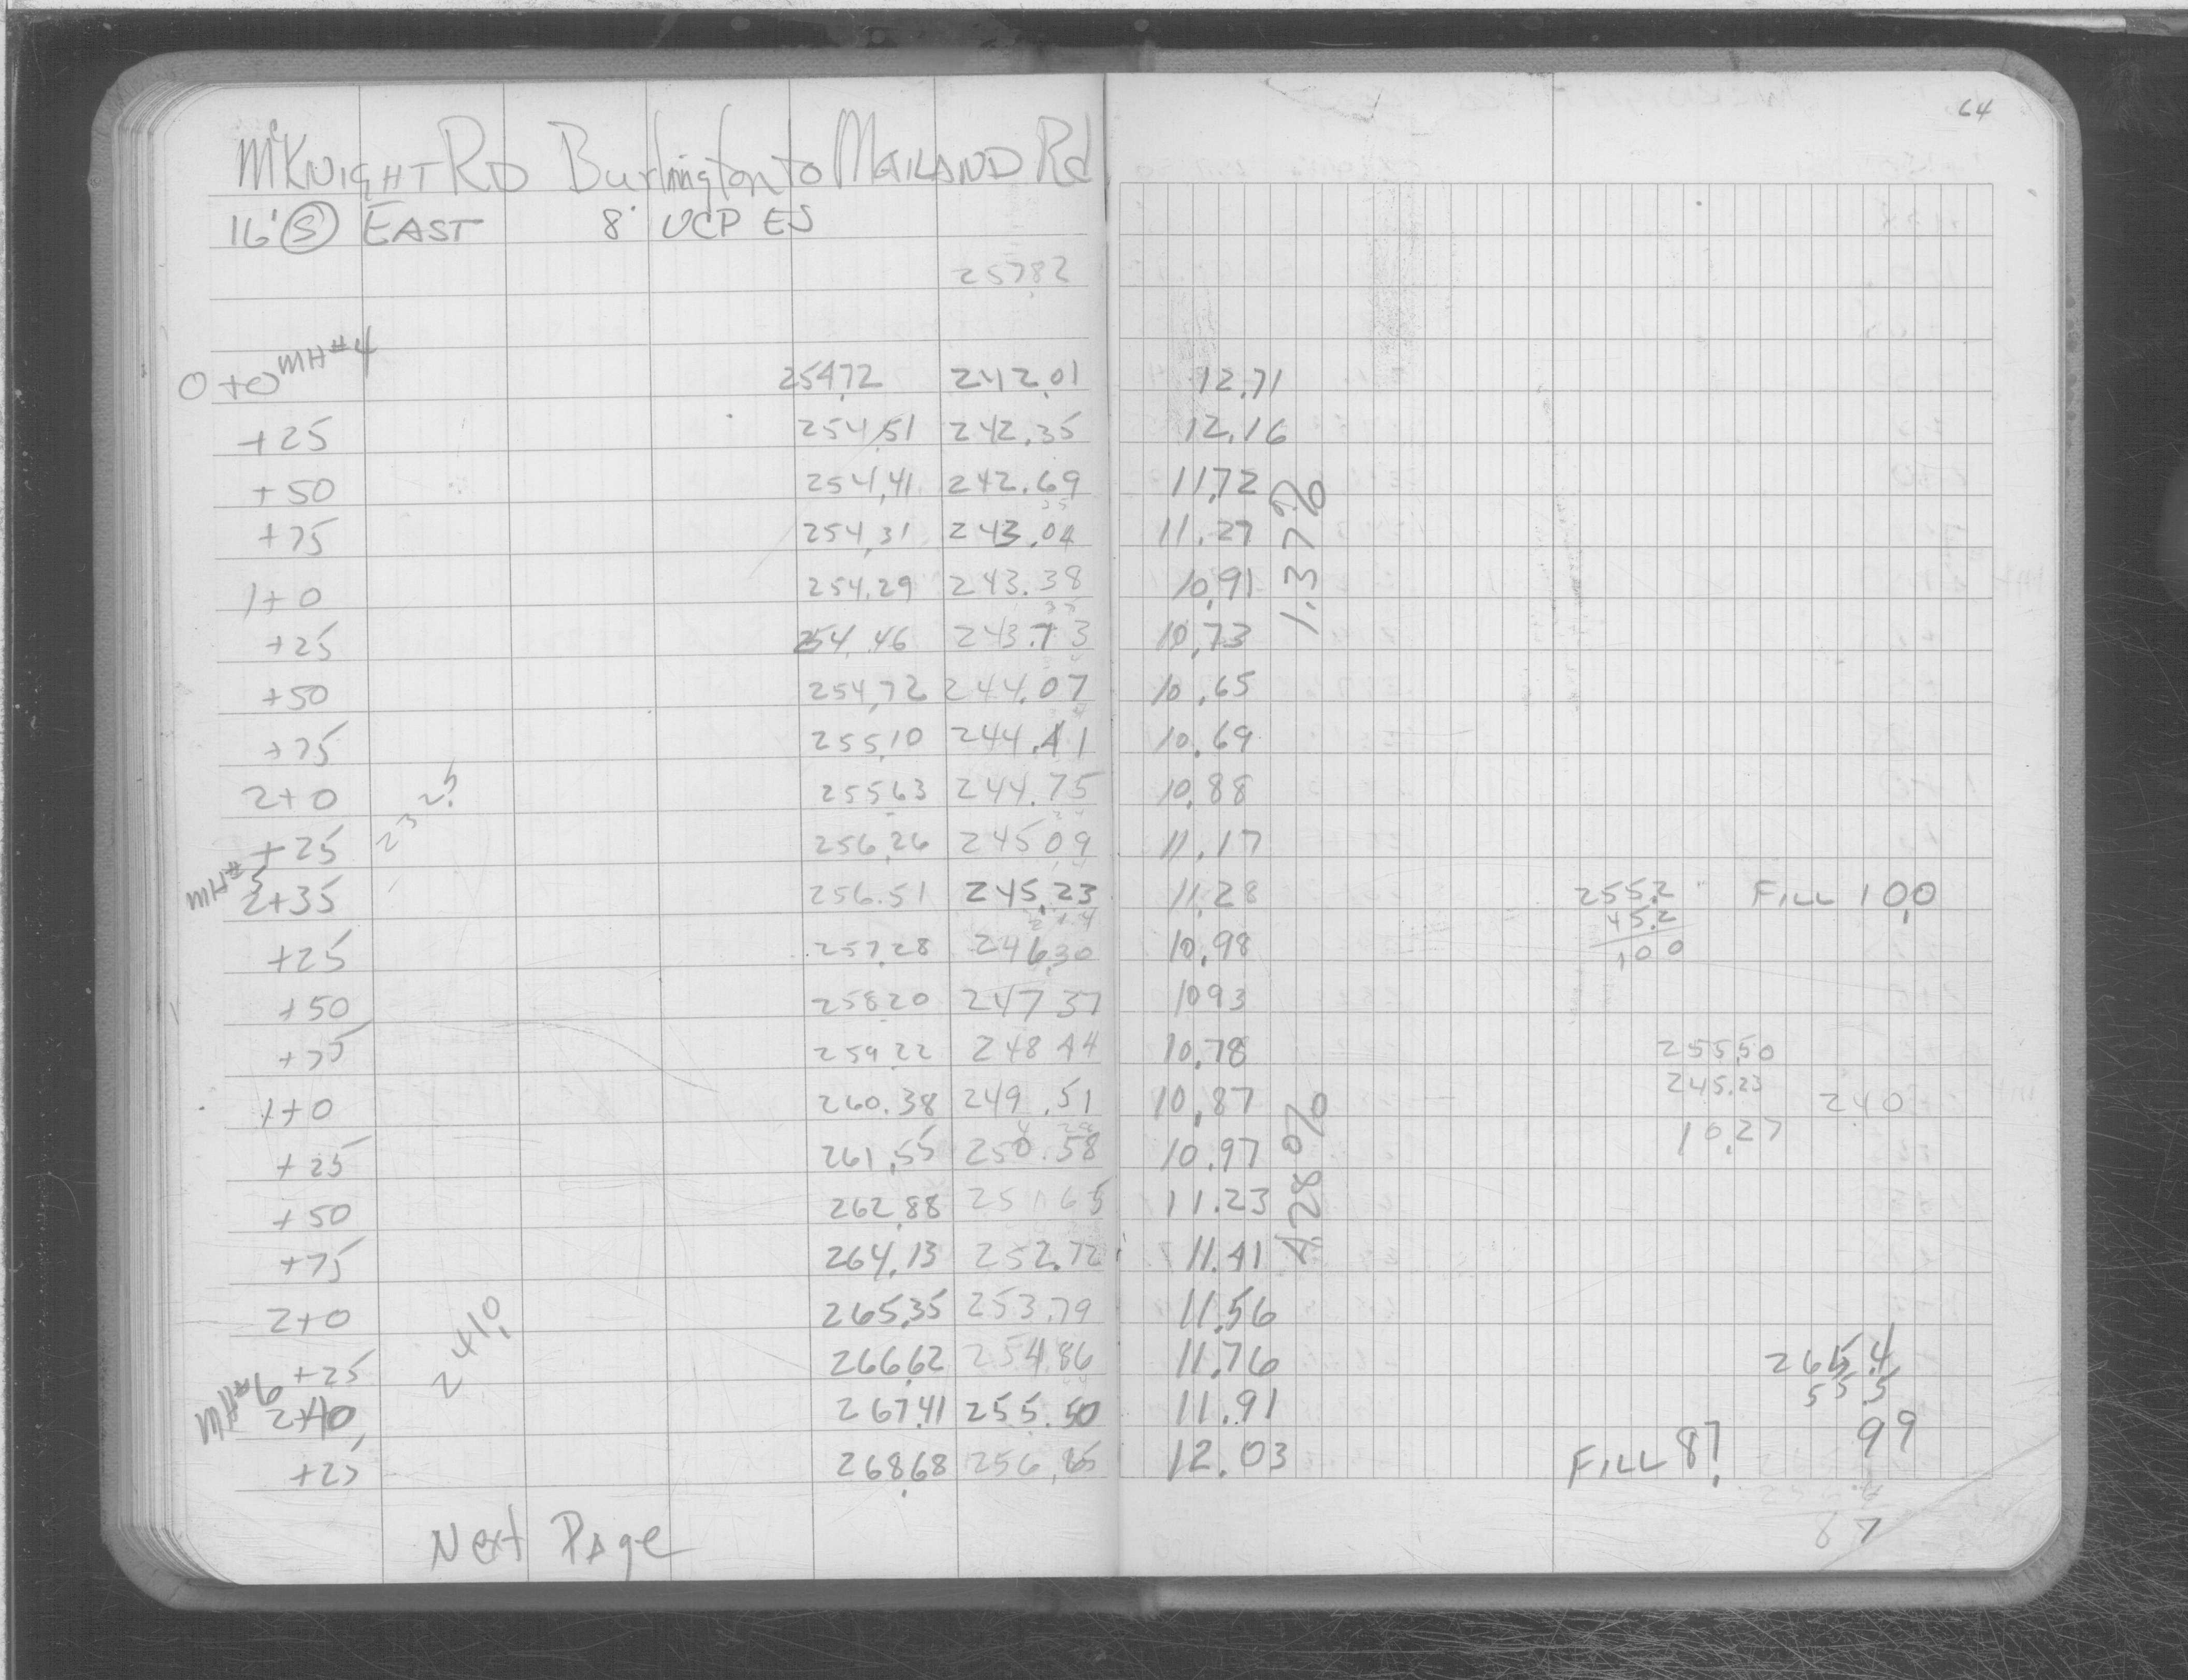 64
McKNIGHT RD Burlington to MAILAND Rd
16' S EAST 8" VCP ES
257.82
0+0 MH#4 254.72 242.01 12.71
+25 254.51 242.35 12.16
+50 254.41 242.69 11.72
+75 254.31 243.04 11.27
1.37%
1+0 254.29 243.38 10.91
+25 254.46 243.73 10.73
+50 254.72 244.07 10.65
+75 255.10 244.41 10.69
2+0 255.63 244.75 10.88
+25 256.26 245.09 11.17
MH#5 2+35 256.51 245.23 11.28 255.2 FILL 10.0
45.2
10 0
+25 257.28 246.30 10.98
+50 258.20 247.37 10.93
+75 259.22 248.44 10.78 255.50
245.23
10.27
240
1+0 260.38 249.51 10.87
4.28%
+25 261.55 250.58 10.97
+50 262.88 251.65 11.23
+75 264.13 252.72 11.41
2+0 265.35 253.79 11.56
241.0
+25 266.62 254.86 11.76 265.4
55.5
99
MH#6 2+40 267.41 255.50 11.91
+25 268.68 256.65 12.03 FILL 8.7
67
Next Page